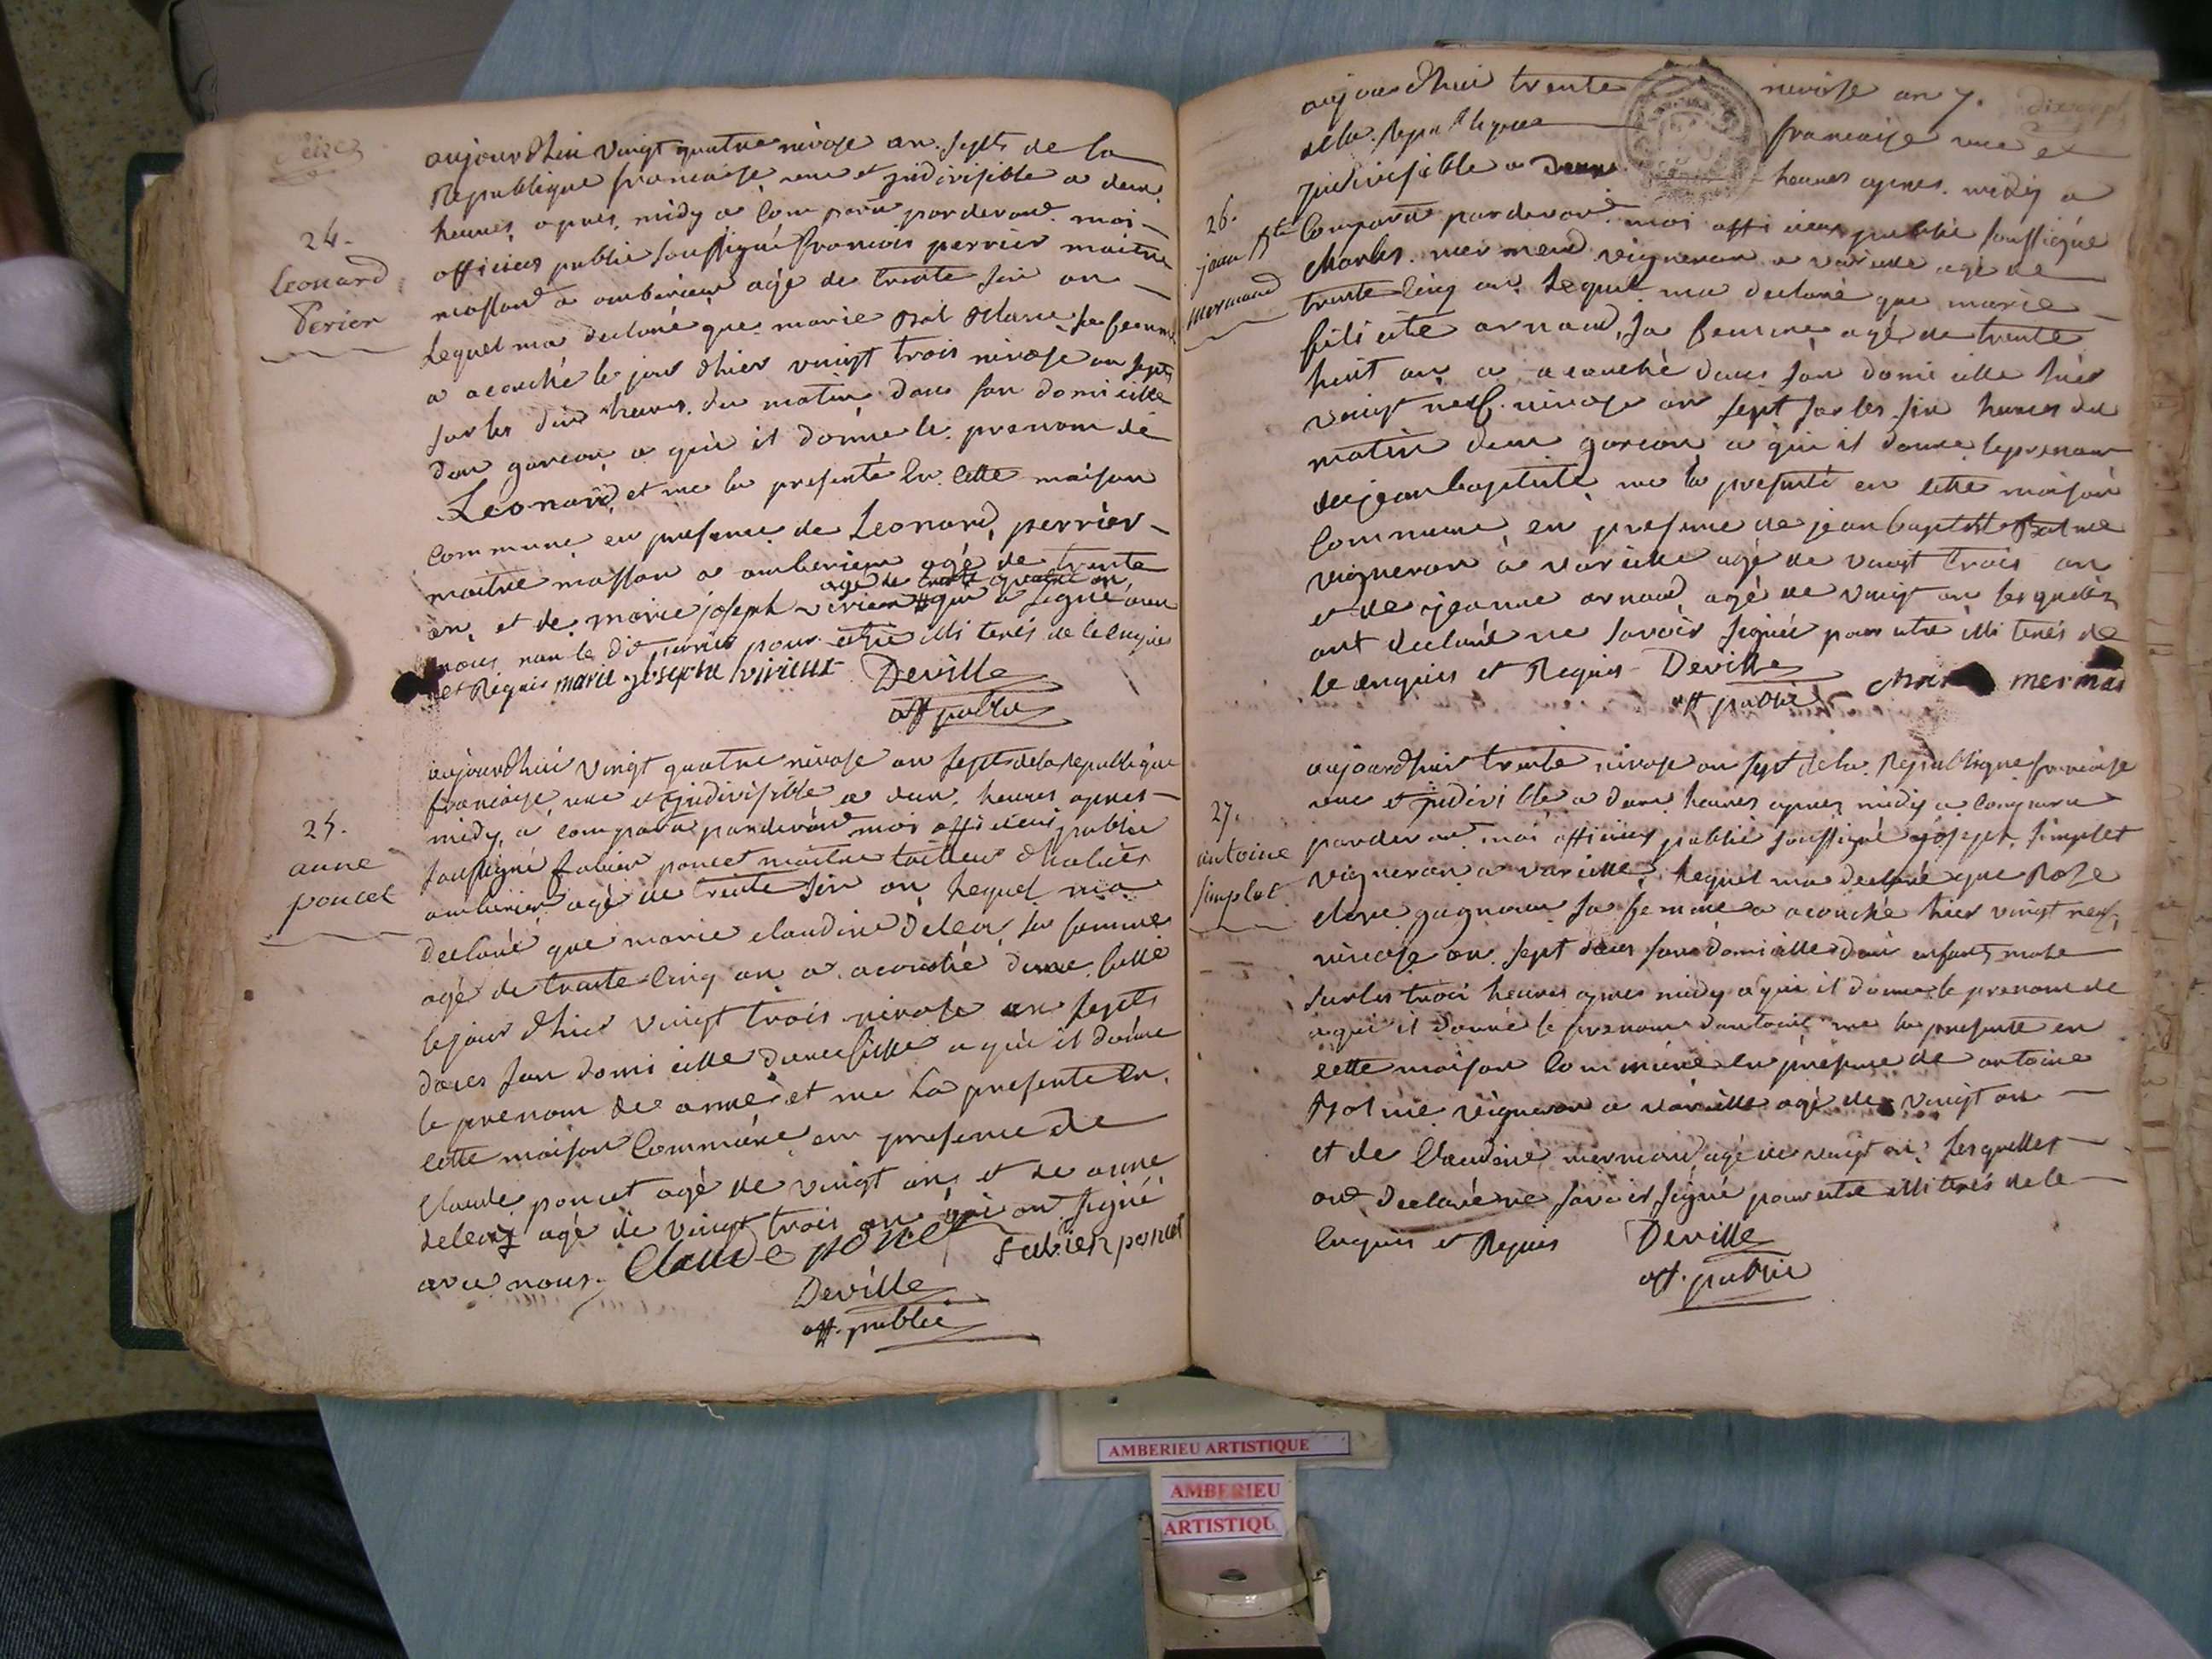 24.
Leonard
Perier
aujourdhui vingt quatre nivose an septs de la
Republique francaise une et jndivisible a deux
heures apres midy a Comparu pardevant moi
officier public soussigné francois perrier maitre
masson a amberieux agé de trente six an
Lequel ma declaré que marie sa femme
a acouché le jour dhier vingt trois nivose an sept
sur les dix heures du matin dans son domicille
dun garcon a qui il donne le prenom de
Leonard et me la presenté en cette maison
Commune en presence de Leonard perrier
maitre masson a amberieux agé de trente
agé de trente quatre an
an, et de marie joseph vivieux qui a signé avec
nous non le dit perrier pour etre illiterés de ce enquis
et Requis marie josephe vivieux Deville
off public
25.
anne
poncet
aujourdhui vingt quatre nivose an septs de la republique
francaise une et jndivisible a deux heures apres
midy a comparu pardevant moi officier public
soussigné fabien poncet maitre tailleur dhabits
amberieux agé de trente six an Lequel ma
declaré que marie claudine sa femme
agé de trente cinq an a acouché dune fille
le jour dhier vingt trois nivose an septs
dans son domicille dune fille a qui il donne
le prenom de anne et me la presente en
cette maison Commune en presence de
Claude poncet agé de vingt an et de anne
agé de vingt trois an qui on signé
avec nous Claude poncet fabien poncet
Deville
off. public
26.
jean Bte
mermand
aujourdhui trente nivose an 7.
de la Republique francaise une et
jndivisible a deux heures apres midy a
Comparu pardevant moi officier public soussigné
Charles mermand vigneron a vareille agé de
trente cinq an Lequel ma declaré que marie
felicité arnaud sa femme agé de trente
huit an a acouché dans son domicille hier
vingt neuf nivose an sept sur les six heures du
matin dun garcon a qui il donne le prenom
de jean baptiste me la presenté en cette maison
Commune en presence de jean baptiste
vigneron a vareille agé de vingt trois an
et de jeanne arnaud agé de vingt an lesquels
ont declaré ne savoir signer pour etre illiterés de
ce enquis et Requis Deville mermand
off public
27.
antoine
simplet
aujourdhui trente nivose an sept de la Republique francaise
une et jndivisible a deux heures apres midy a comparu
pardevant moi officier public soussigné joseph simplet
vigneron a vareille, Lequel ma declaré que Rose
clere sa femme a acouché hier vingt neuf
nivose an sept dans son domicille dun enfant male
sur les trois heures apres midy a qui il donne le prenom de
a qui il donne le prenom dantoine me la presente en
cette maison Commune en presence de antoine
vigneron a vareille agé de vingt an
et de Claudine mermand agé de vingt an Lesquelles
on declaré ne savoir signé pour etre illiterés de ce
Enquis et Requis Deville
off. public
AMBERIEU ARTISTIQUE
AMBERIEU
ARTISTIQU